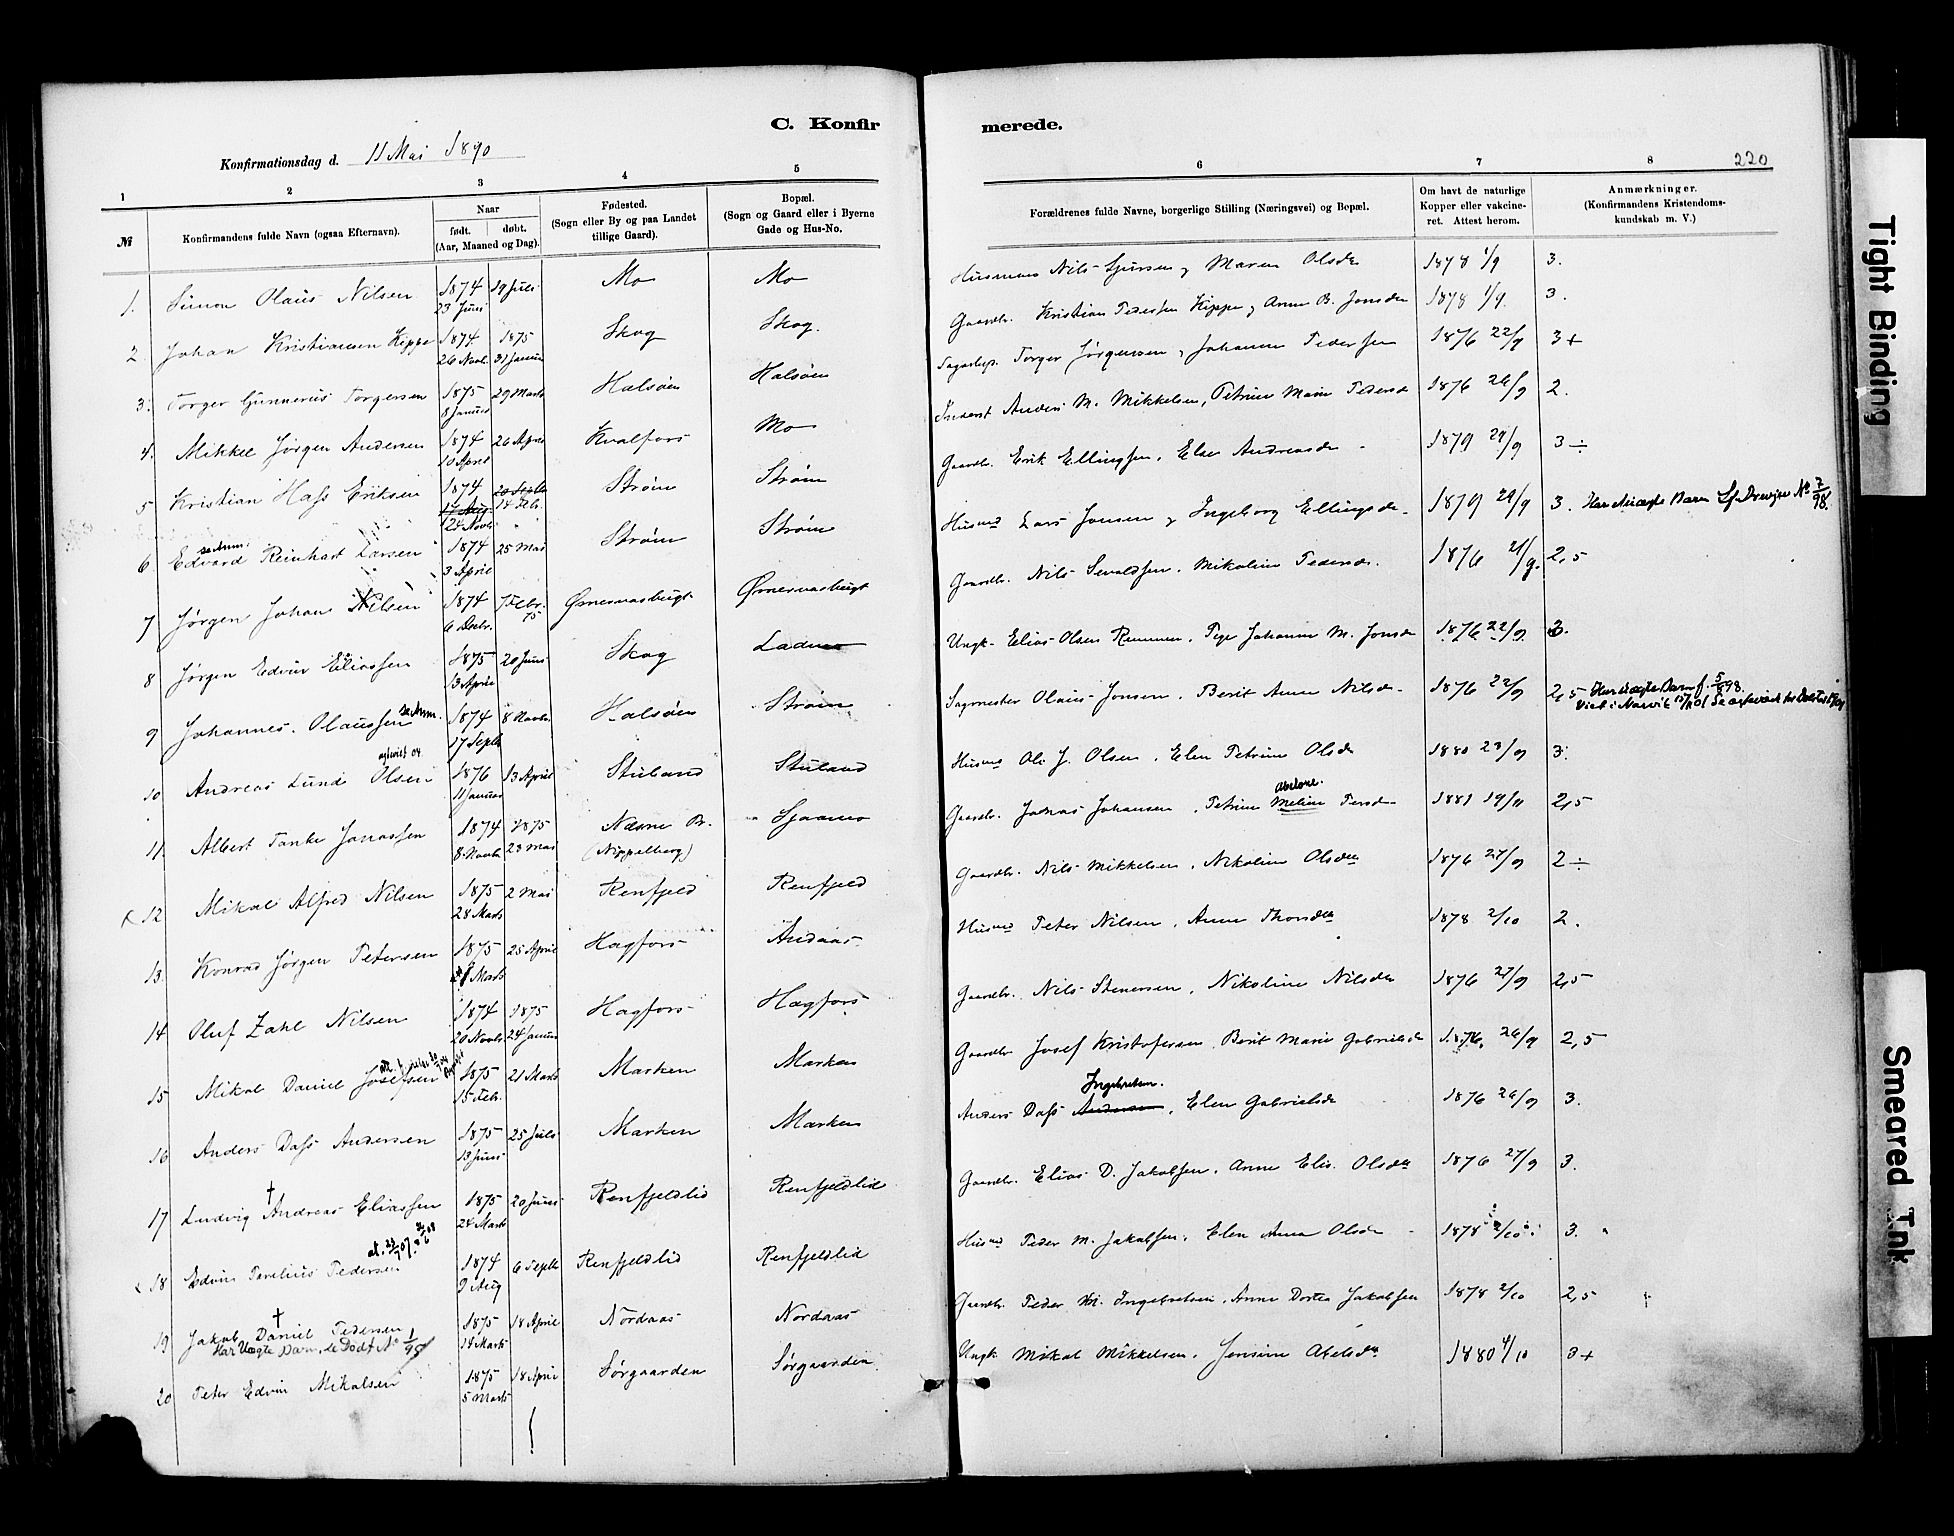 C. Konfirmerede.
Konfirmationsdag d. 11 Mai 1890
220
1 2 3 4 5 6 7 8
№
Konfirmandens fulde Navn (ogsaa Efternavn).
Naar
født. døbt.
(Aar, Maaned og Dag).
Fødested.
(Sogn eller By og paa Landet
tillige Gaard).
Bopæl.
(Sogn og Gaard eller i Byerne
Gade og Hus-No.
Forældrenes fulde Navne, borgerlige Stilling (Næringsvei) og Bopæl.
Om havt de naturlige
Kopper eller vakcine-
ret. Attest herom.
Anmærkninger.
(Konfirmandens Kristendoms-
kundskab m. V.)
1. Simon Olaus Nilsen 1874 23 Juni 19 Juli Mo Mo Husmand Nils Sjursen og Maren Olsdr 1878 1/9 3.
2. Johan Kristiansen Kippe 1874 26 Novb. 1875 31 Januar Skog Skog. Gaardbr. Kristian Pedersen Kippe og Anne B. Jonsdr 1878 1/9. 3.
3. Torger Gunnerus Torgersen 1875 8 Januar 29 Marts Halsøen Halsøen Torger Jørgensen, Johanna Pedersen 1876 22/9 3+
4. Mikkel Jørgen Andersen 1874 10 April 26 April Kvalfors Mo Inderst Anders M. Mikkelsen, Petrine Marie Pedersd 1876 26/9 2.
5 Kristian Hass Eriksen 1874 17 Aug. 24 Novb. 20 Septb 14 Febr. Strøm Strøm Gaardbr. Erik Ellingsen, Else Andreasdr 1879 29/9 3÷
6 Edvard Reinhart Larsen 1874 3 April 25 Mai Strøm Strøm Husmd Lars Jonsen og Ingeborg Ellingsdr 1879 29/9 3. Har uægte Barn Drevjen № 7/98.
7 Jørgen Johan Nilsen 1874 6 Decbr. 7 Febr. 75 Ørnesvasbugt Ørnesvasbugt Gaardbr. Nils Sevaldsen, Mikoline Pedersdr. 1876 21/9. 2,5
8 Jørgen Edvin Eliassen 1875 13 April 20 Juni Skog Ladmo Ungk. Elias Olsen Remmen, Pige Johanna M. Jonsdr 1876 22/9 3.
9 Johannes Olaussen se Anm. 1874 17 Septb 8 Novbr. Halsøen Strøm Sagmester Olaus Jonsen, Berit Anne Nilsdr 1876 22/9 2,5 Har uægte Barn f. 5/8 98.
Viet i Narvik
10 Andreas Lund Olsen 1876 11 Januar 13 April Stuland Stuland Husmd Ole J. Olsen, Elen Petrine Olsdr 1880 23/9 3.
11. Albert Tanke Jonassen 1874 8. Novbr 1875 23 Mai Næsne Pr. (Nippelberg) Sjaamo Gaardbr. Jonas Johansen, Petrine Meline Abelone. Persd 1881 19/11 2,5
12 Mikal Alfred Nilsen 1875 28 Marts 2 Mai Renfjeld Renfjeld Gaardbr. Nils Mikkelsen, Nikoline Olsdr 1876 27/9 2÷
13. Konrad Jørgen Petersen 1875 Marts 25 April Hagfors Andaas Husmd Peter Nilsen, Anne Thorsdr 1878 2/10 2.
14 Oluf Zahl Nilsen 1874 20 Novbr 1875 24 Januar Hagfors Hagfors Gaardbr. Nils Stenersen, Nikoline Nilsdr 1876 27/9 2,5
15 Mikal Daniel Josefsen 1875 15 Febr. 21 Marts Marken Marken Gaardbr Josef Kristofersen, Berit Marie Gabrielsdr 1876. 26/9 2,5
16 Anders Dass Andersen 1875 13 Juni 25 Juli Marken Marken Anders Dass Andersen Ingebretsen., Elen Gabrielsdr 1876 26/9 3.
17 Ludvig Andreas Eliassen † 1875 24 Marts 20 Juni Renfjeldlid Renfjeldlid Gaardbr. Elias D. Jakobsen, Anne Elis. Olsdr 1876 27/9 3.
18 Edvin Parelius Pedersen 1874 9 Aug 6 Septb Renfjeldlid Renfjeldlid Husmd Peder M. Jakobsen, Elen Anna Olsdr 1878 2/10 3.
19 Jakob Daniel Pedersen † 1875 14 Marts 18 April Nordaas Nordaas Gaardbr. Peder M. Ingebretsen, Anne Dortea Jakobsen 1878 2/10 2,5
Har Uægte Barn, se Døbt № 1/98
20 Peter Edvin Mikalsen 1875 5 Marts 18 April Sørgaarden Sørgaarden Ungk. Mikal Mikkelsen, Jensine Abelsdr 1880 4/10 3+
Tight Binding
Smeared Ink